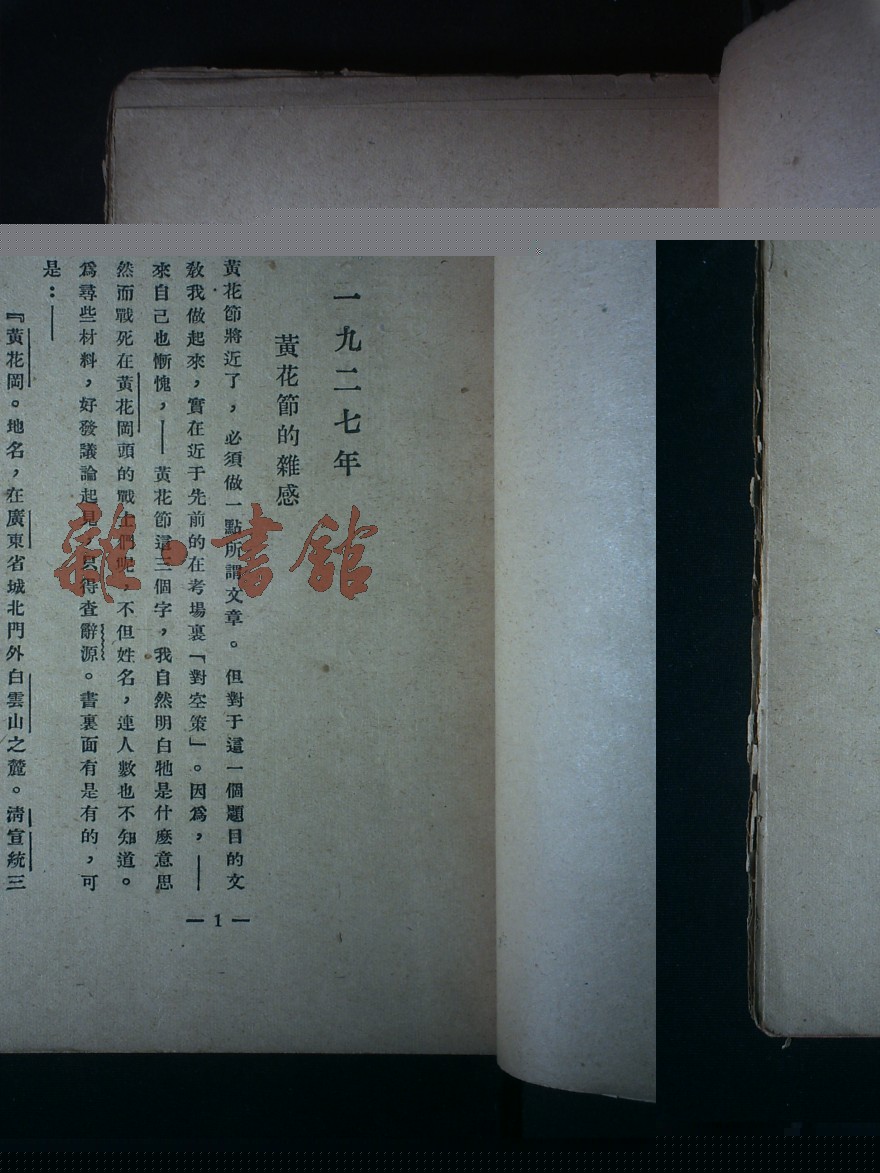 一九二七年
黃花節的雜感
黃花節將近了，必須做一點所謂文章。但對于這一個題目的文
敎我做起來，實在近于先前的在考場裏「對空策」。因爲，——
來自己也慚愧，——黃花節這三個字，我自然明白牠是什麽意思
然而戰死在黃花岡頭的戰士們呢，不但姓名，連人數也不知道。
爲尋些材料，好發議論起見，只得查辭源。書裏面有是有的，可
是：——
『黃花岡。地名，在廣東省城北門外白雲山之麓。淸宣統三
— 1 —
雜·書館